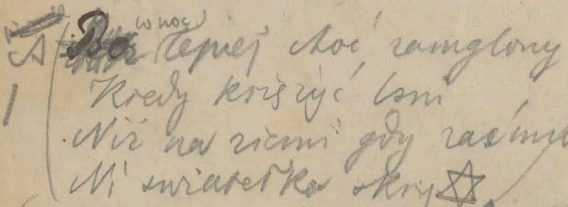 A Bo w noc lepiej choć zamglony
Kiedy księżyc lśni
Niż na ziemi gdy zaćmi
Ni światełka skry